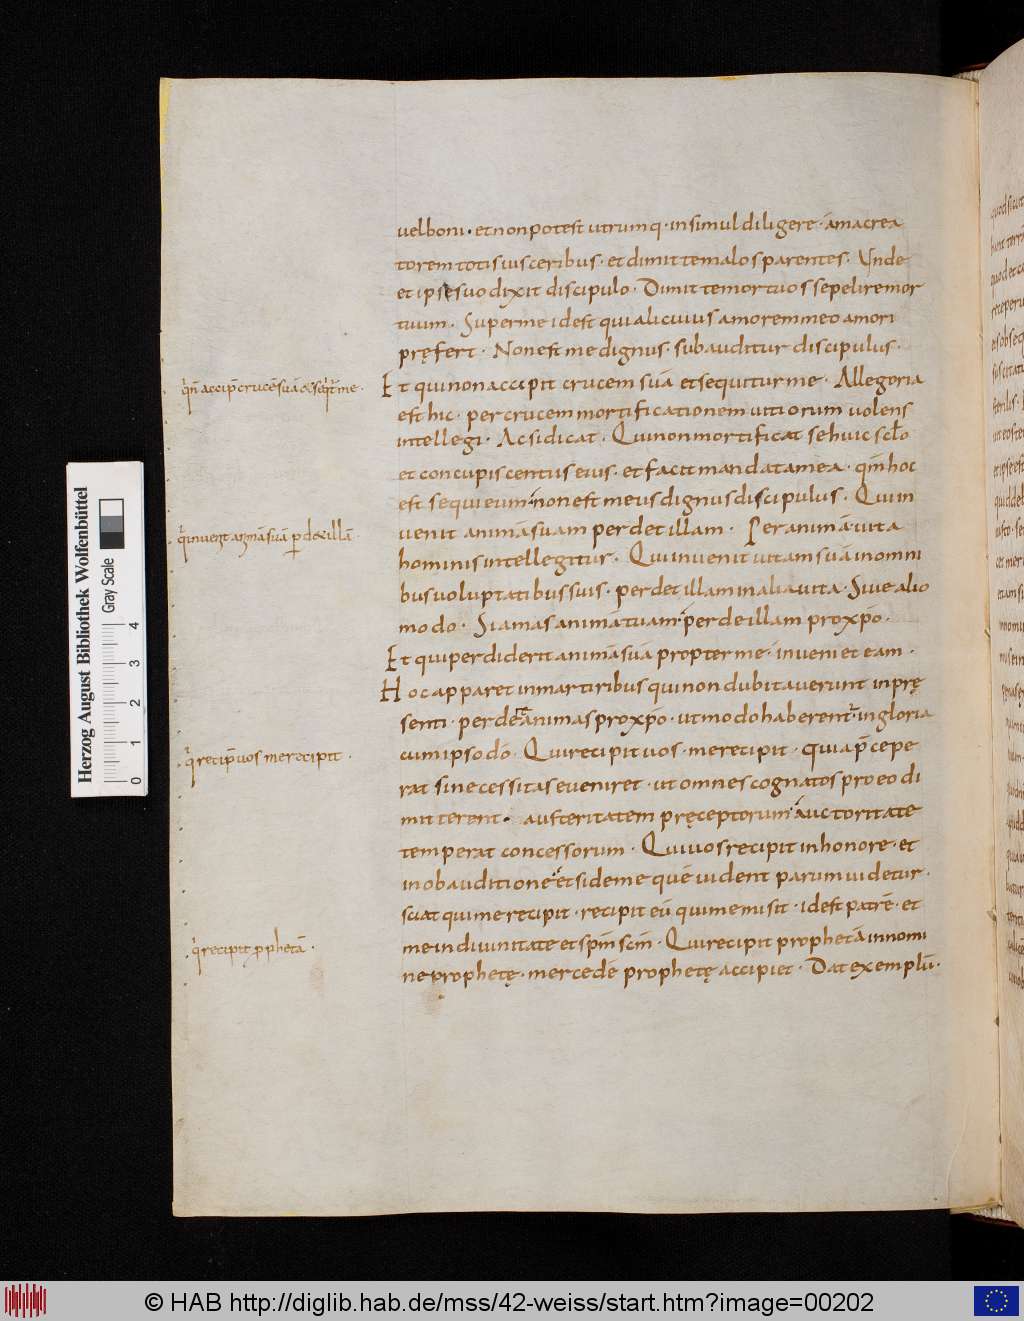 uel boni · et non potest utrumq · insimul diligere · ama crea
torem totis uisceribus · et dimitte malos parentes · Unde
et ipse suo dixit discipulo · Dimitte mortuos sepelire mor
tuum · Super me id est qui alicuius amorem meo amori
pręfert · Non est me dignus · subauditur discipulus ·
q̄ n̄ accip̄ crucē suā & seq̄t̄ me ·
Et qui non accipit crucem suā et sequitur me · Allegoria
est hic · per crucem mortificationem uitiorum uolens
intellegi · Ac si dicat · Qui non mortificat se huic sclo
et concupiscentiis eius · et facit mandata mea · qm̄ hoc
est sequi eum · non est meus dignus discipulus · Qui in
q̄ inuenit animā suā p̄det illā ·
uenit animā suam perdet illam · Per animā uita
hominis intellegitur · Qui inuenit uitam suā in omni
bus uoluptatibus suis · perdet illam in alia uita · Siue alio
modo · Si amas animā tuam · perde illam pro xp̄o ·
Et qui perdiderit animā suā propter me · inueniet eam ·
Hoc apparet in martiribus qui non dubitauerunt in prę
senti · perdere animas pro xp̄o · ut modo haberentr · in gloria
q̄ recip̄ uos me recipit ·
cum ipso dō · Qui recipit uos · me recipit · quia p̄cepe
rat si necessitas eueniret · ut omnes cognatos pro eo di
mitterent · austeritatem pręceptorum · auctoritate
temperat concessorum · Qui uos recipit in honore · et
in obauditione · et si de me quē uident parum uidetur ·
sciat qui me recipit · recipit eū qui me misit · id est patrē · et
q̄ recipit pphetā ·
me in diuinitate et spm̄ scm̄ · Qui recipit prophetā in nomi
ne prophetę · mercedē prophetę accipiet · Dat exemplū ·
Herzog August Bibliothek Wolfenbüttel
Gray Scale
0 1 2 3 4
© HAB http://diglib.hab.de/mss/42-weiss/start.htm?image=00202